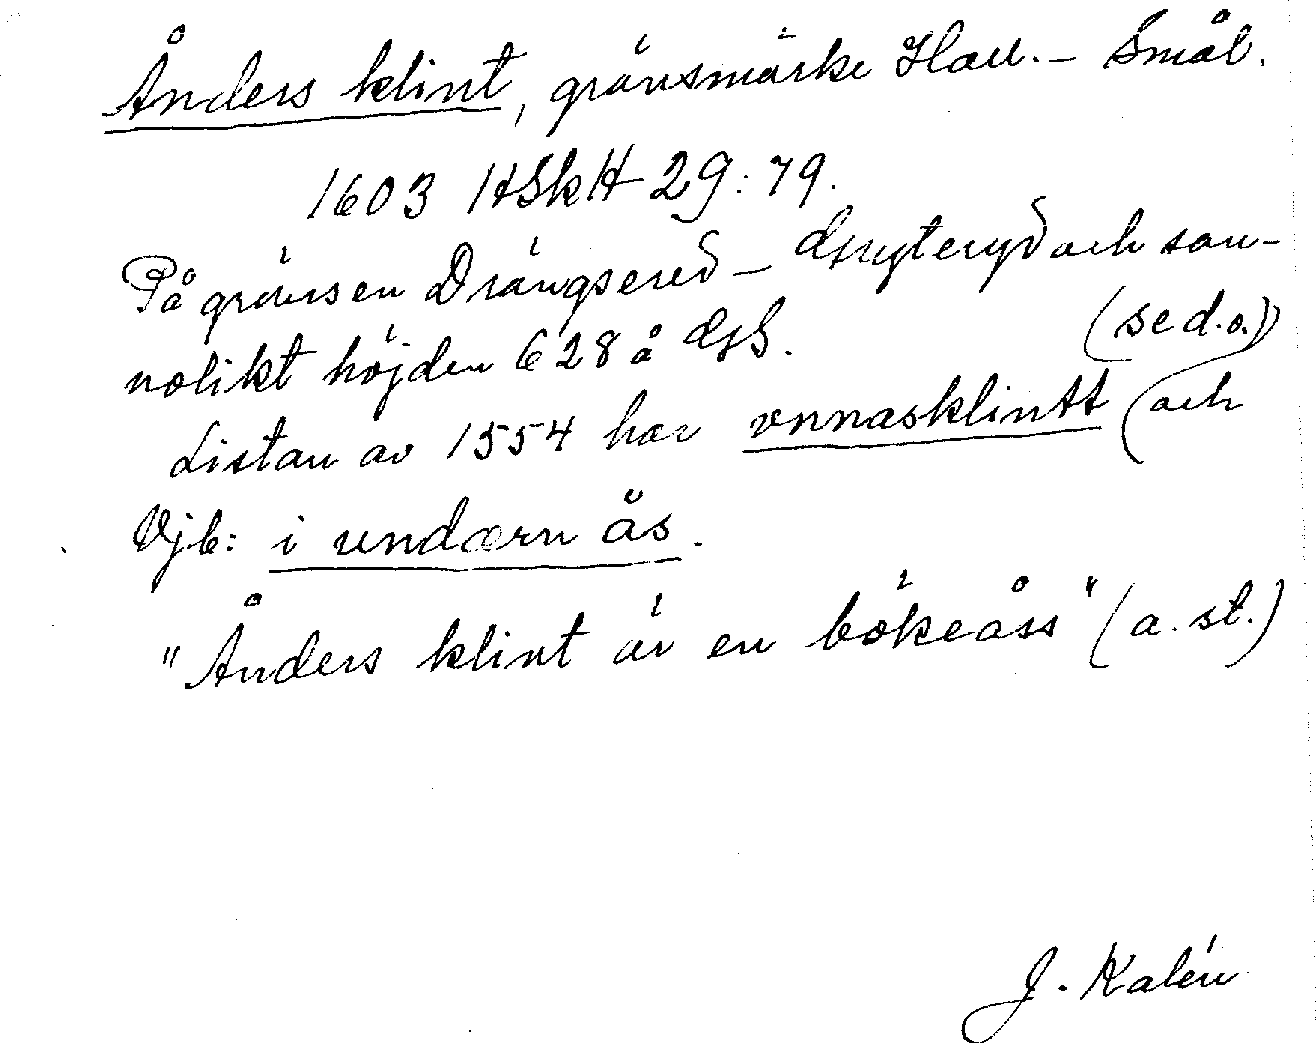 Ånders klint, gränsmärke Hall. – Smål.
1603 HSkH 29:79.
På gränsen Drängsered – Gryteryd och san-
nolikt höjden 628 å GfS.
(se d.o.)
Listan av 1554 har vnnasklintt (och
Vjb: i undærn ås.
"Ånders klint är en bökeåss" (a. st.)
J. Kalén